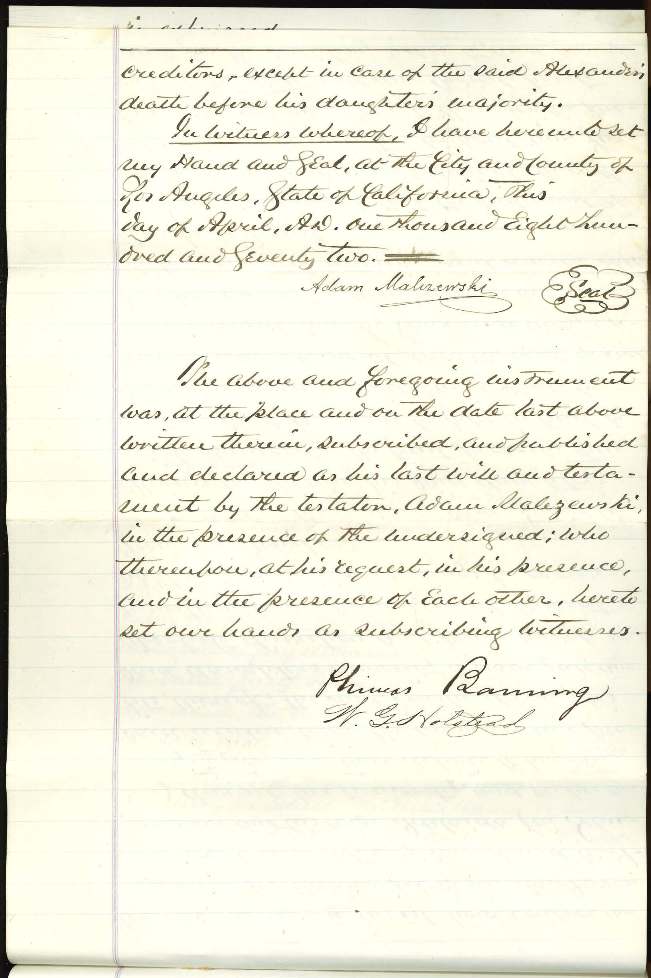 creditors, except in case of the said Alexander's
death before his daughter's majority.
In Witness Whereof, I have hereunto set
my Hand and Seal, at the City and County of
Los Angeles, State of California, this
day of April, A.D. one thousand Eight hun-
dred and Seventy two.
Adam Malczewski
Seal
The above and foregoing instrument
was, at the place and on the date last above
written therein, subscribed, and published
and declared as his last will and testa-
ment by the testator, Adam Malczewski,
in the presence of the undersigned; who
thereupon, at his request, in his presence,
and in the presence of Each other, hereto
set our hands as subscribing witnesses.
Phineas Banning
W. G. Holstead